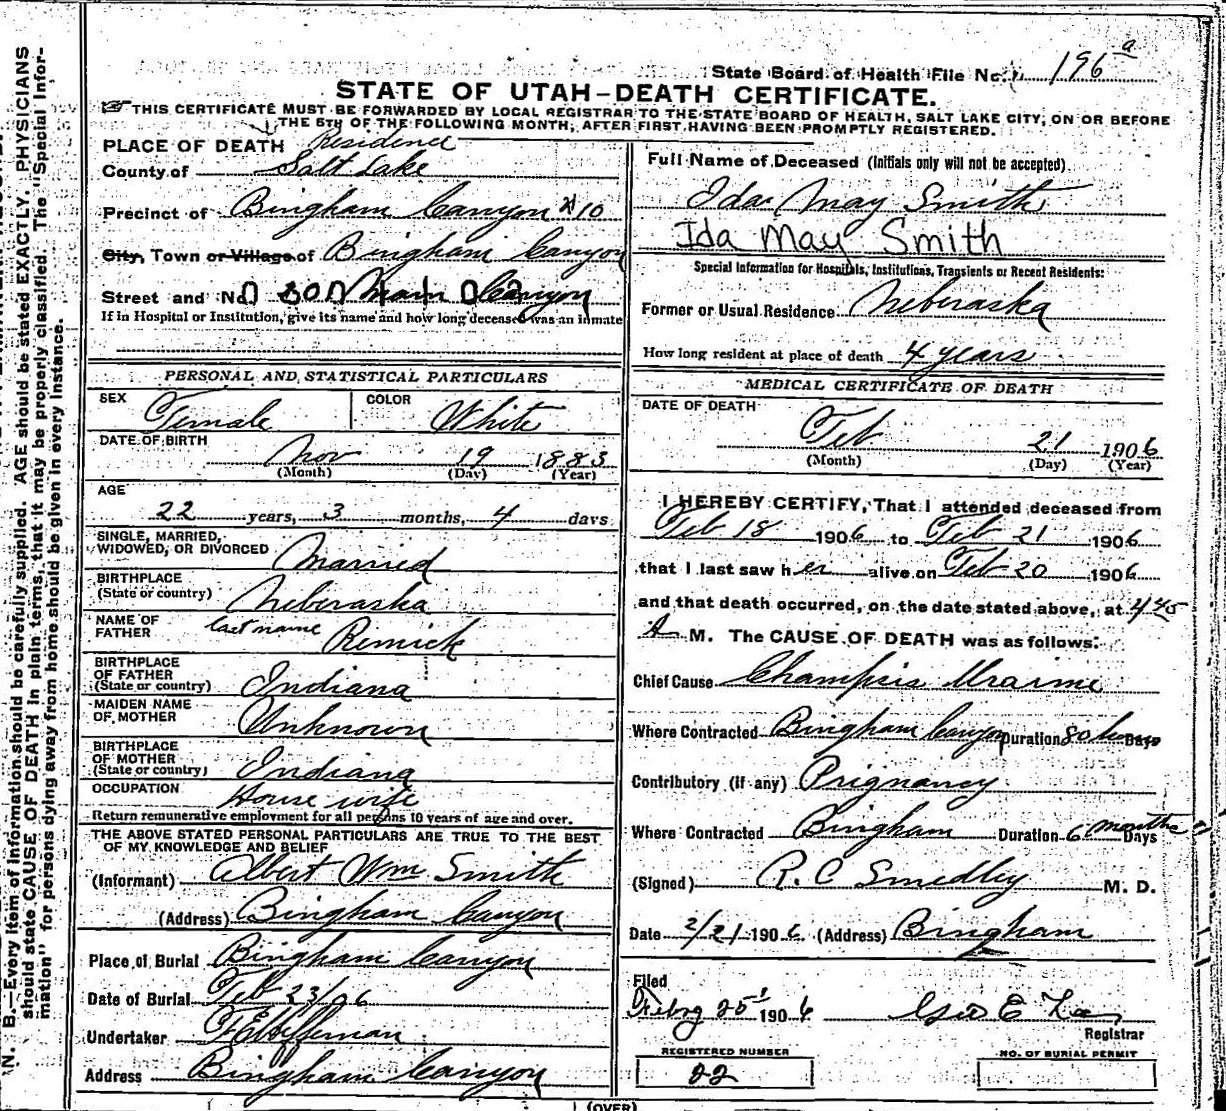 State Board of Health File No. 196 a
STATE OF UTAH—DEATH CERTIFICATE.
THIS CERTIFICATE MUST BE FORWARDED BY LOCAL REGISTRAR TO THE STATE BOARD OF HEALTH, SALT LAKE CITY, ON OR BEFORE
THE 5TH OF THE FOLLOWING MONTH, AFTER FIRST HAVING BEEN PROMPTLY REGISTERED.
PLACE OF DEATH Residence
County of Salt Lake
Precinct of Bingham Canyon #10
City, Town or Village of Bingham Canyon
Street and No. Main Canyon
If in Hospital or Institution, give its name and how long deceased was an inmate
PERSONAL AND STATISTICAL PARTICULARS
SEX Female COLOR White
DATE OF BIRTH
Nov 19 1883
(Month) (Day) (Year)
AGE
22 years, 3 months, 4 days
SINGLE, MARRIED,
WIDOWED, OR DIVORCED Married
BIRTHPLACE
(State or country) Nebraska
NAME OF
FATHER last name Remick
BIRTHPLACE
OF FATHER
(State or country) Indiana
MAIDEN NAME
OF MOTHER Unknown
BIRTHPLACE
OF MOTHER
(State or country) Indiana
OCCUPATION House wife
Return remunerative employment for all persons 10 years of age and over.
THE ABOVE STATED PERSONAL PARTICULARS ARE TRUE TO THE BEST
OF MY KNOWLEDGE AND BELIEF
(Informant) Albert Wm Smith
(Address) Bingham Canyon
Place of Burial Bingham Canyon
Date of Burial Feb 23/06
Undertaker
Address Bingham Canyon
Full Name of Deceased (Initials only will not be accepted)
Ida May Smith
Ida May Smith
Special Information for Hospitals, Institutions, Transients or Recent Residents:
Former or Usual Residence Nebraska
How long resident at place of death 4 years
MEDICAL CERTIFICATE OF DEATH
DATE OF DEATH
Feb 21 1906
(Month) (Day) (Year)
I HEREBY CERTIFY, That I attended deceased from
Feb 18 1906 to Feb 21 1906
that I last saw her alive on Feb 20 1906
and that death occurred, on the date stated above, at 4 45
A M. The CAUSE OF DEATH was as follows:
Chief Cause
Where Contracted Bingham Canyon Duration 80 hours Days
Contributory (if any) Prignancy
Where Contracted Bingham Duration 6 months Days
(Signed) R. C Smedley M. D.
Date 2/21 1906 (Address) Bingham
Filed
1906 Geo E
Registrar
REGISTERED NUMBER
22
NO. OF BURIAL PERMIT
(OVER)
N. B.—Every item of information should be carefully supplied. AGE should be stated EXACTLY. PHYSICIANS
should state CAUSE OF DEATH in plain terms, that it may be properly classified. The "Special Infor-
mation" for persons dying away from home should be given in every instance.